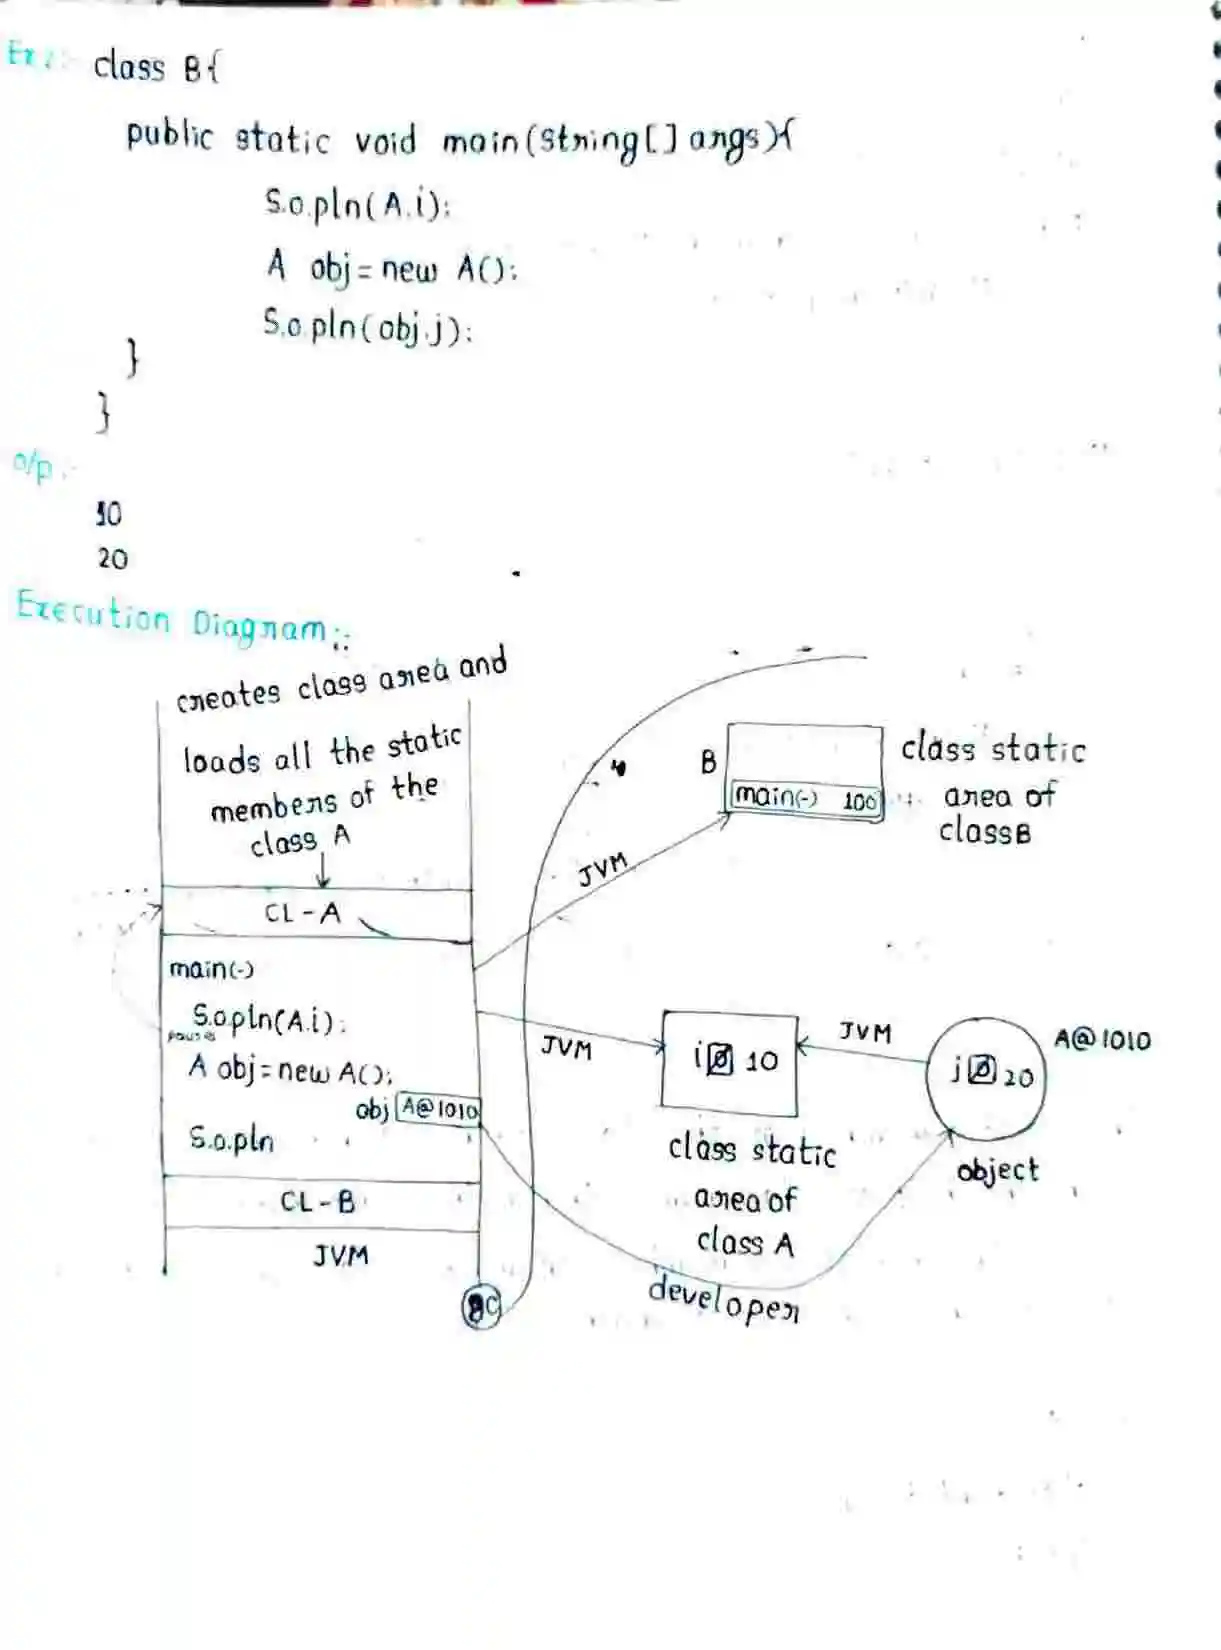 Ex:-
class B{
public static void main(String[] args){
S.o.pln(A.i);
A obj = new A();
S.o.pln(obj.j);
}
}
o/p :-
10
20
Execution Diagram::
creates class area and
loads all the static
members of the
class A
CL - A
main(-)
S.o.pln(A.i);
pauses
A obj = new A();
obj A@1010
S.o.pln
CL - B
JVM
JVM
B
main(-) 100
class static
area of
class B
JVM
i 0 10
class static
area of
class A
JVM
j 0 20
A@1010
object
developer